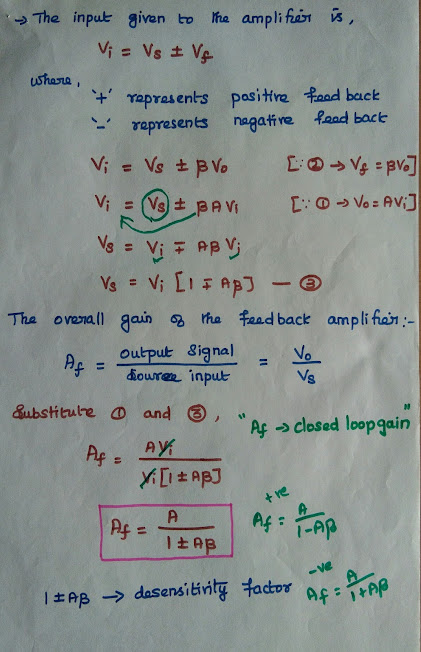 → The input given to the amplifier is,
Vi = Vs ± Vf
where,
'+' represents positive feedback
'-' represents negative feedback
Vi = Vs ± βVo [∵ ② → Vf = βVo]
Vi = Vs ± βAVi [∵ ① → Vo = AVi]
Vs = Vi ∓ AβVi
Vs = Vi [1 ∓ Aβ] — ③
The overall gain of the feedback amplifier:-
Af = output signal / source input = Vo / Vs
Substitute ① and ③, "Af → closed loop gain"
Af = AVi / Vi [1 ± Aβ]
Af = A / 1 ± Aβ +ve Af = A / 1-Aβ
1 ± Aβ → desensitivity factor -ve Af = A / 1+Aβ